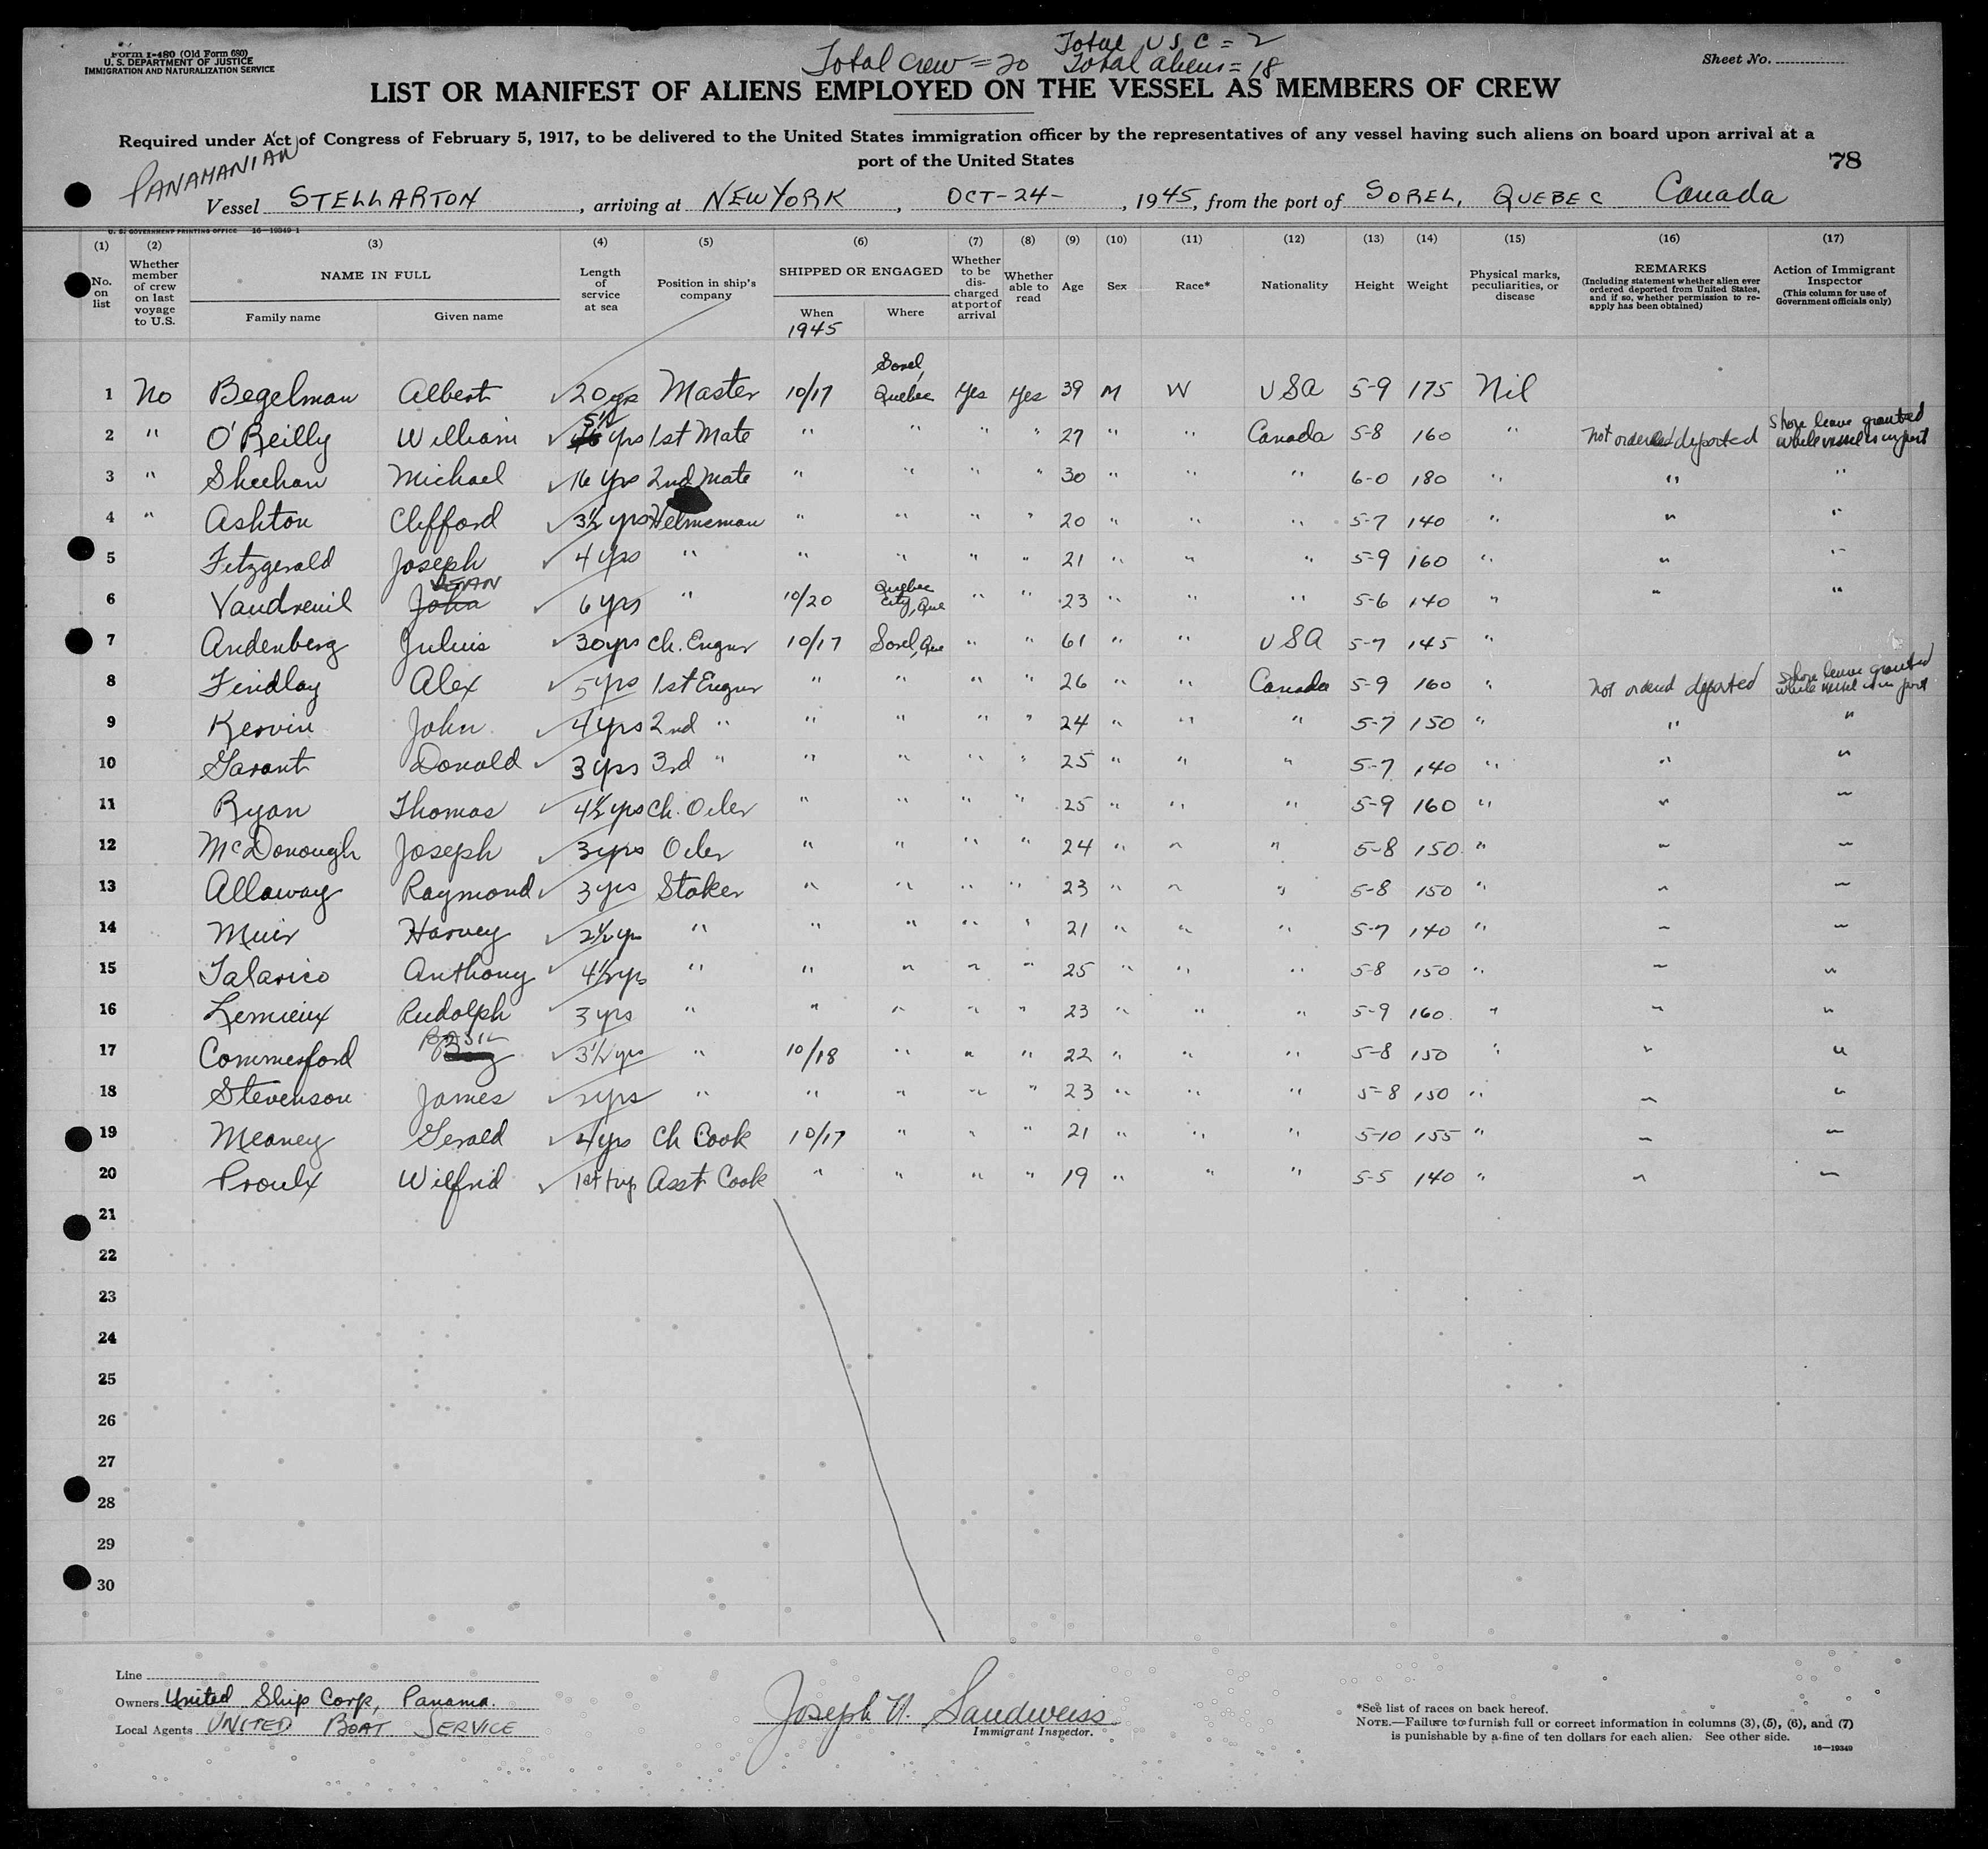 Form I-480 (Old Form 680)
U. S. DEPARTMENT OF JUSTICE
IMMIGRATION AND NATURALIZATION SERVICE
Total crew = 20 Total U S C = 2
Total aliens = 18
Sheet No.
LIST OR MANIFEST OF ALIENS EMPLOYED ON THE VESSEL AS MEMBERS OF CREW
Required under Act of Congress of February 5, 1917, to be delivered to the United States immigration officer by the representatives of any vessel having such aliens on board upon arrival at a
port of the United States
78
PANAMANIAN
Vessel STELLARTON, arriving at NEW YORK, OCT-24-, 1945, from the port of SOREL, QUEBEC Canada
U. S. GOVERNMENT PRINTING OFFICE 16-19349-1
(1) (2) (3) (4) (5) (6) (7) (8) (9) (10) (11) (12) (13) (14) (15) (16) (17)
No. on list
Whether member of crew on last voyage to U.S.
NAME IN FULL
Family name Given name
Length of service at sea
Position in ship's company
SHIPPED OR ENGAGED
When Where
1945
Whether to be discharged at port of arrival
Whether able to read
Age Sex Race* Nationality Height Weight
Physical marks, peculiarities, or disease
REMARKS
(Including statement whether alien ever ordered deported from United States, and if so, whether permission to re-apply has been obtained)
Action of Immigrant Inspector
(This column for use of Government officials only)
1 No Begelman Albert 20 yrs Master 10/17 Sorel, Quebec Yes Yes 39 M W USA 5-9 175 Nil
2 " O'Reilly William 5½ yrs 1st Mate " " " " 27 " " Canada 5-8 160 " Not ordered deported Shore leave granted while vessel is in port
3 " Sheehan Michael 16 yrs 2nd Mate " " " " 30 " " " 6-0 180 " " "
4 " Ashton Clifford 3½ yrs Helmsman " " " " 20 " " " 5-7 140 " " "
5 Fitzgerald Joseph 4 yrs " " " " " 21 " " " 5-9 160 " " "
6 Vaudreuil John JEAN 6 yrs " 10/20 Quebec City, Que " " 23 " " " 5-6 140 " " "
7 Andenberg Julius 30 yrs Ch. Engnr 10/17 Sorel, Que " " 61 " " USA 5-7 145 "
8 Findlay Alex 5 yrs 1st Engnr " " " " 26 " " Canada 5-9 160 " Not ordered deported Shore leave granted while vessel is in port
9 Kervin John 4 yrs 2nd " " " " " 24 " " " 5-7 150 " " "
10 Garant Donald 3 yrs 3rd " " " " " 25 " " " 5-7 140 " " "
11 Ryan Thomas 4½ yrs Ch. Oiler " " " " 25 " " " 5-9 160 " " "
12 McDonough Joseph 3 yrs Oiler " " " " 24 " " " 5-8 150 " " "
13 Allaway Raymond 3 yrs Stoker " " " " 23 " " " 5-8 150 " " "
14 Muir Harvey 2½ yrs " " " " " 21 " " " 5-7 140 " " "
15 Talarico Anthony 4½ yrs " " " " " 25 " " " 5-8 150 " " "
16 Lemieux Rudolph 3 yrs " " " " " 23 " " " 5-9 160 " " "
17 Commerford BASIL 3½ yrs " 10/18 " " " 22 " " " 5-8 150 " " "
18 Stevenson James 2 yrs " " " " " 23 " " " 5-8 150 " " "
19 Meaney Gerald 4 yrs Ch Cook 10/17 " " " 21 " " " 5-10 155 " " "
20 Proulx Wilfrid 1st trip Asst Cook " " " " 19 " " " 5-5 140 " " "
21
22
23
24
25
26
27
28
29
30
Line
Owners United Ship Corp, Panama.
Local Agents UNITED BOAT SERVICE
Joseph N. Sandweiss
Immigrant Inspector.
*See list of races on back hereof.
NOTE.—Failure to furnish full or correct information in columns (3), (5), (6), and (7)
is punishable by a fine of ten dollars for each alien. See other side.
16—19349